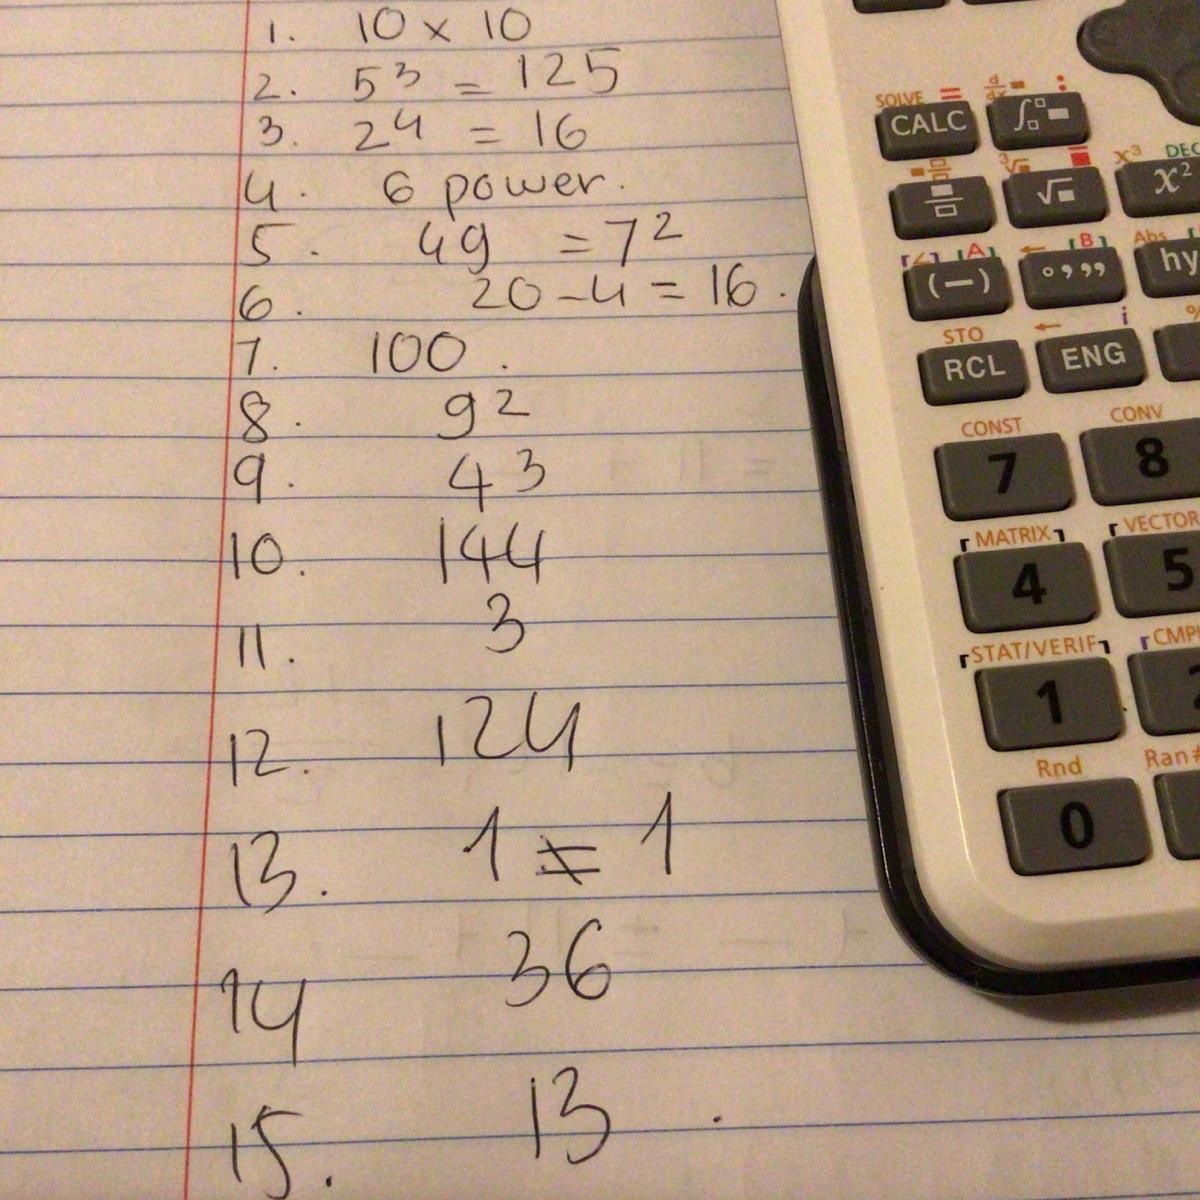 1. 10 x 10
2. 5³ = 125
3. 2⁴ = 16
4. 6 power.
5. 49 = 7²
6. 20 - 4 = 16.
7. 100.
8. 9²
9. 4³
10. 144
11. 3
12. 124
13. 1 ≠ 1
14 36
15. 13.
SOLVE = d/dx :
CALC ∫
x³ DEC
√ x²
[A] ← [B] Abs
(-) ° ’ ” hy
STO ← i %
RCL ENG
CONST CONV
7 8
MATRIX VECTOR
4 5
STAT/VERIF CMPL
1 2
Rnd Ran#
0